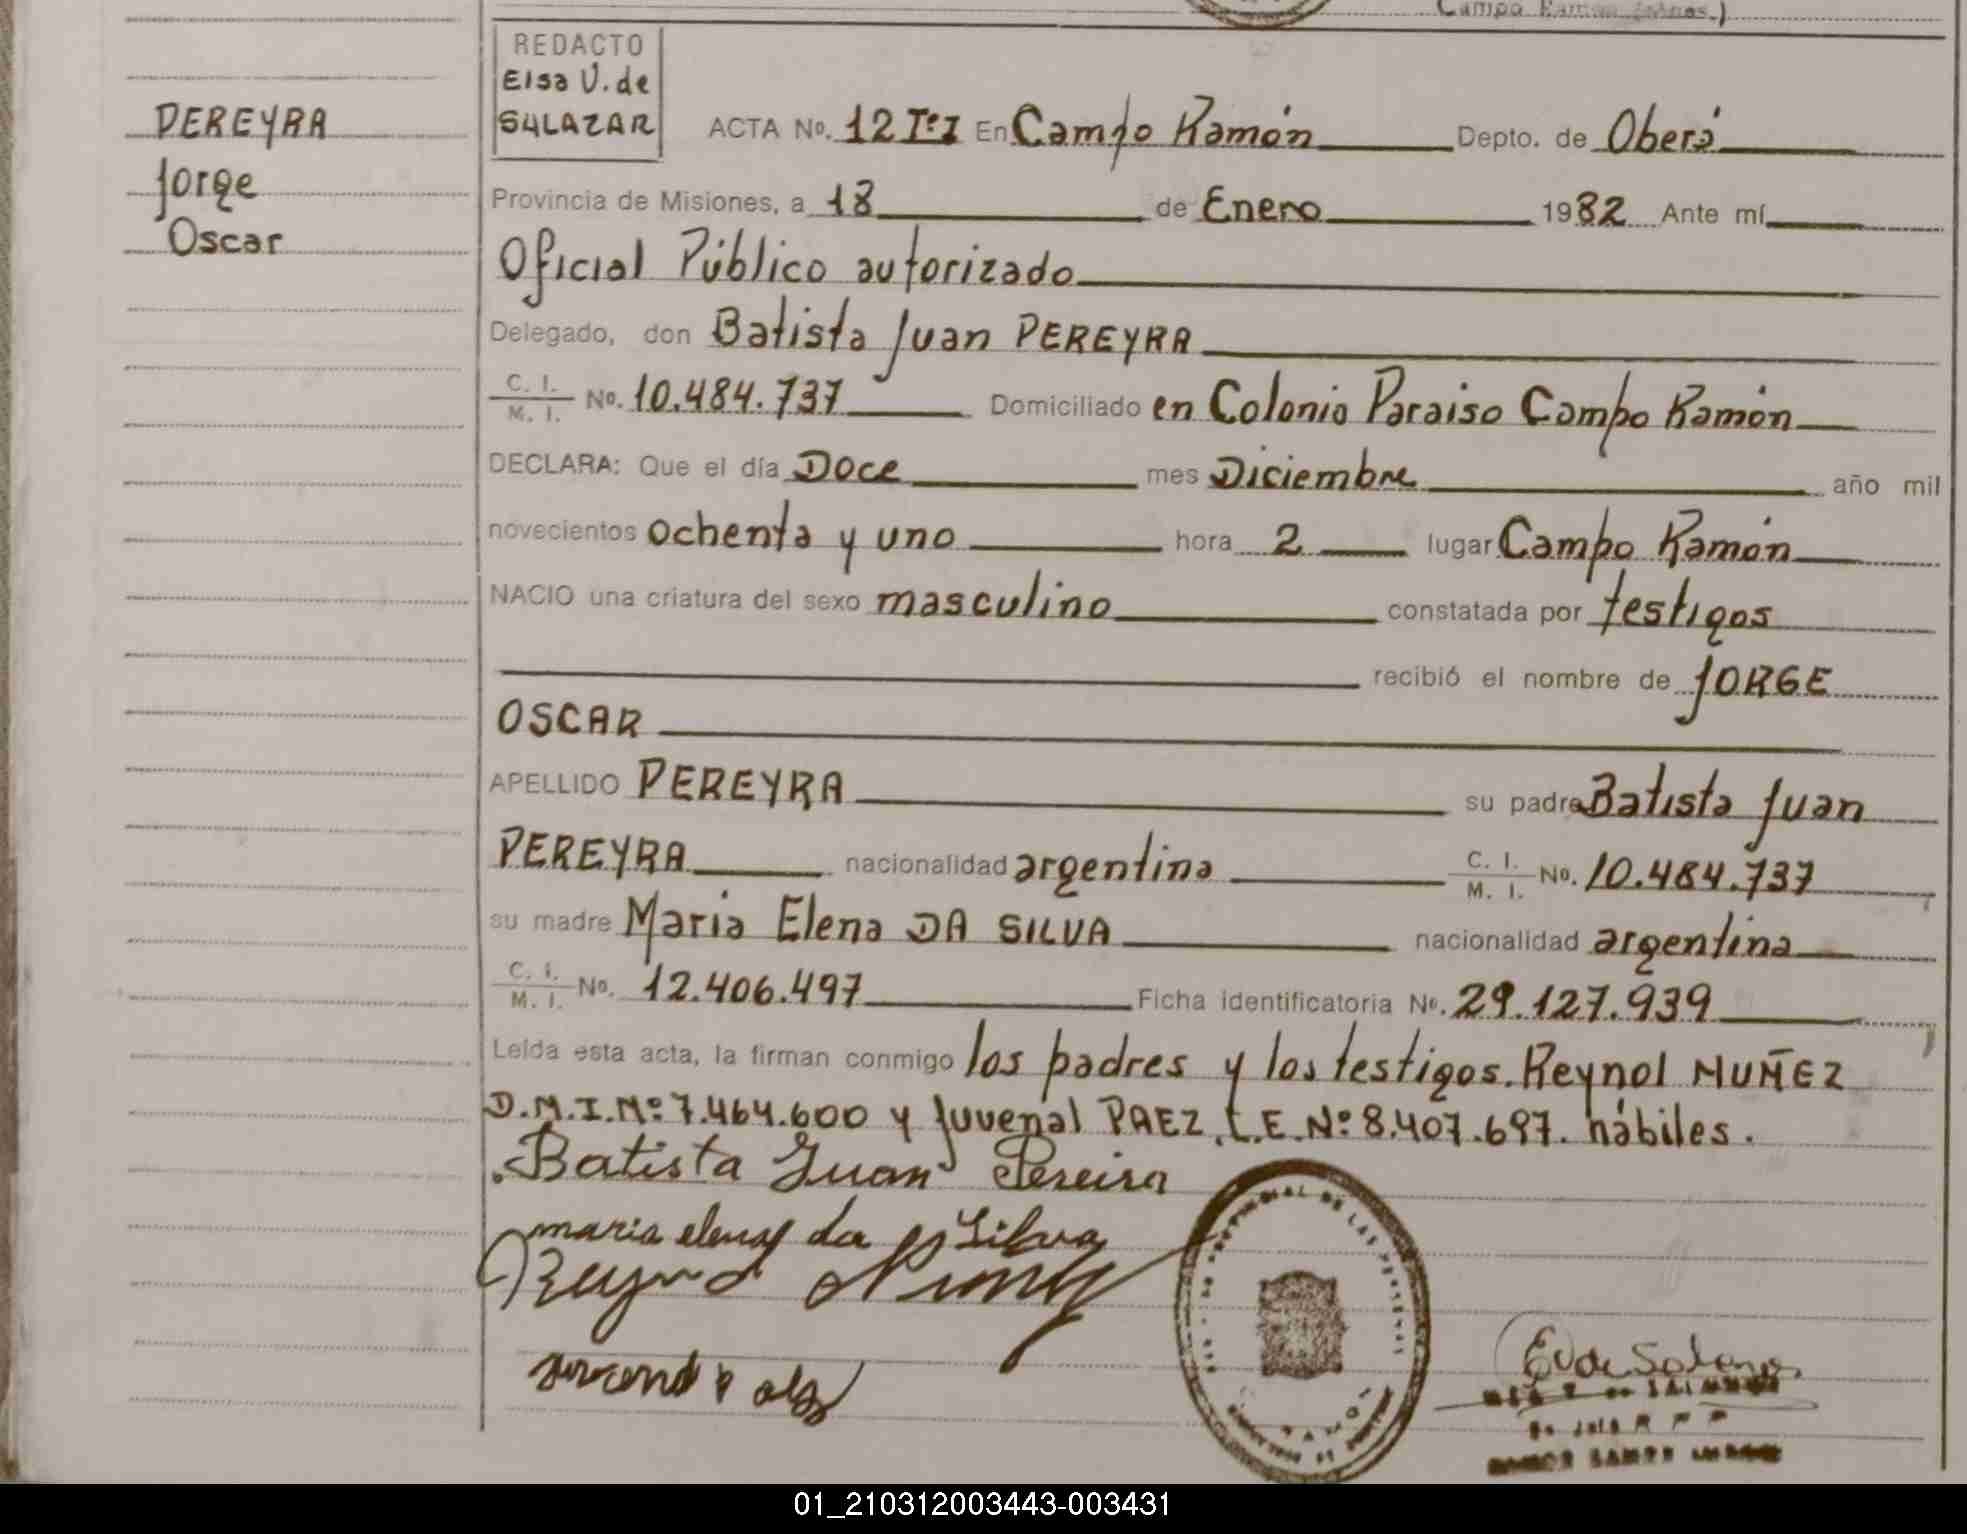 Campo Ramon (Mnes.)
REDACTO
Elsa V. de
SALAZAR
PEREYRA
Jorge
Oscar
ACTA No. 12 Tº I En Campo Ramón Depto. de Oberá
Provincia de Misiones, a 18 de Enero 1982 Ante mí
Oficial Público autorizado
Delegado, don Batista Juan PEREYRA
C. I. / M. I. No. 10.484.737 Domiciliado en Colonia Paraiso Campo Ramón
DECLARA: Que el día Doce mes Diciembre año mil
novecientos ochenta y uno hora 2 lugar Campo Ramón
NACIO una criatura del sexo masculino constatada por testigos
recibió el nombre de JORGE
OSCAR
APELLIDO PEREYRA su padre Batista Juan
PEREYRA nacionalidad argentina C. I. / M. I. No. 10.484.737
su madre Maria Elena DA SILVA nacionalidad argentina
C. I. / M. I. No. 12.406.497 Ficha identificatoria No. 29.127.939
Leída esta acta, la firman conmigo los padres y los testigos. Reynol NUÑEZ
D.M.I. Nº 7.464.600 y Juvenal PAEZ. L.E. Nº 8.407.697. hábiles.
Batista Juan Pereira
maria elena da Silva
E V de Salazar
01_210312003443-003431